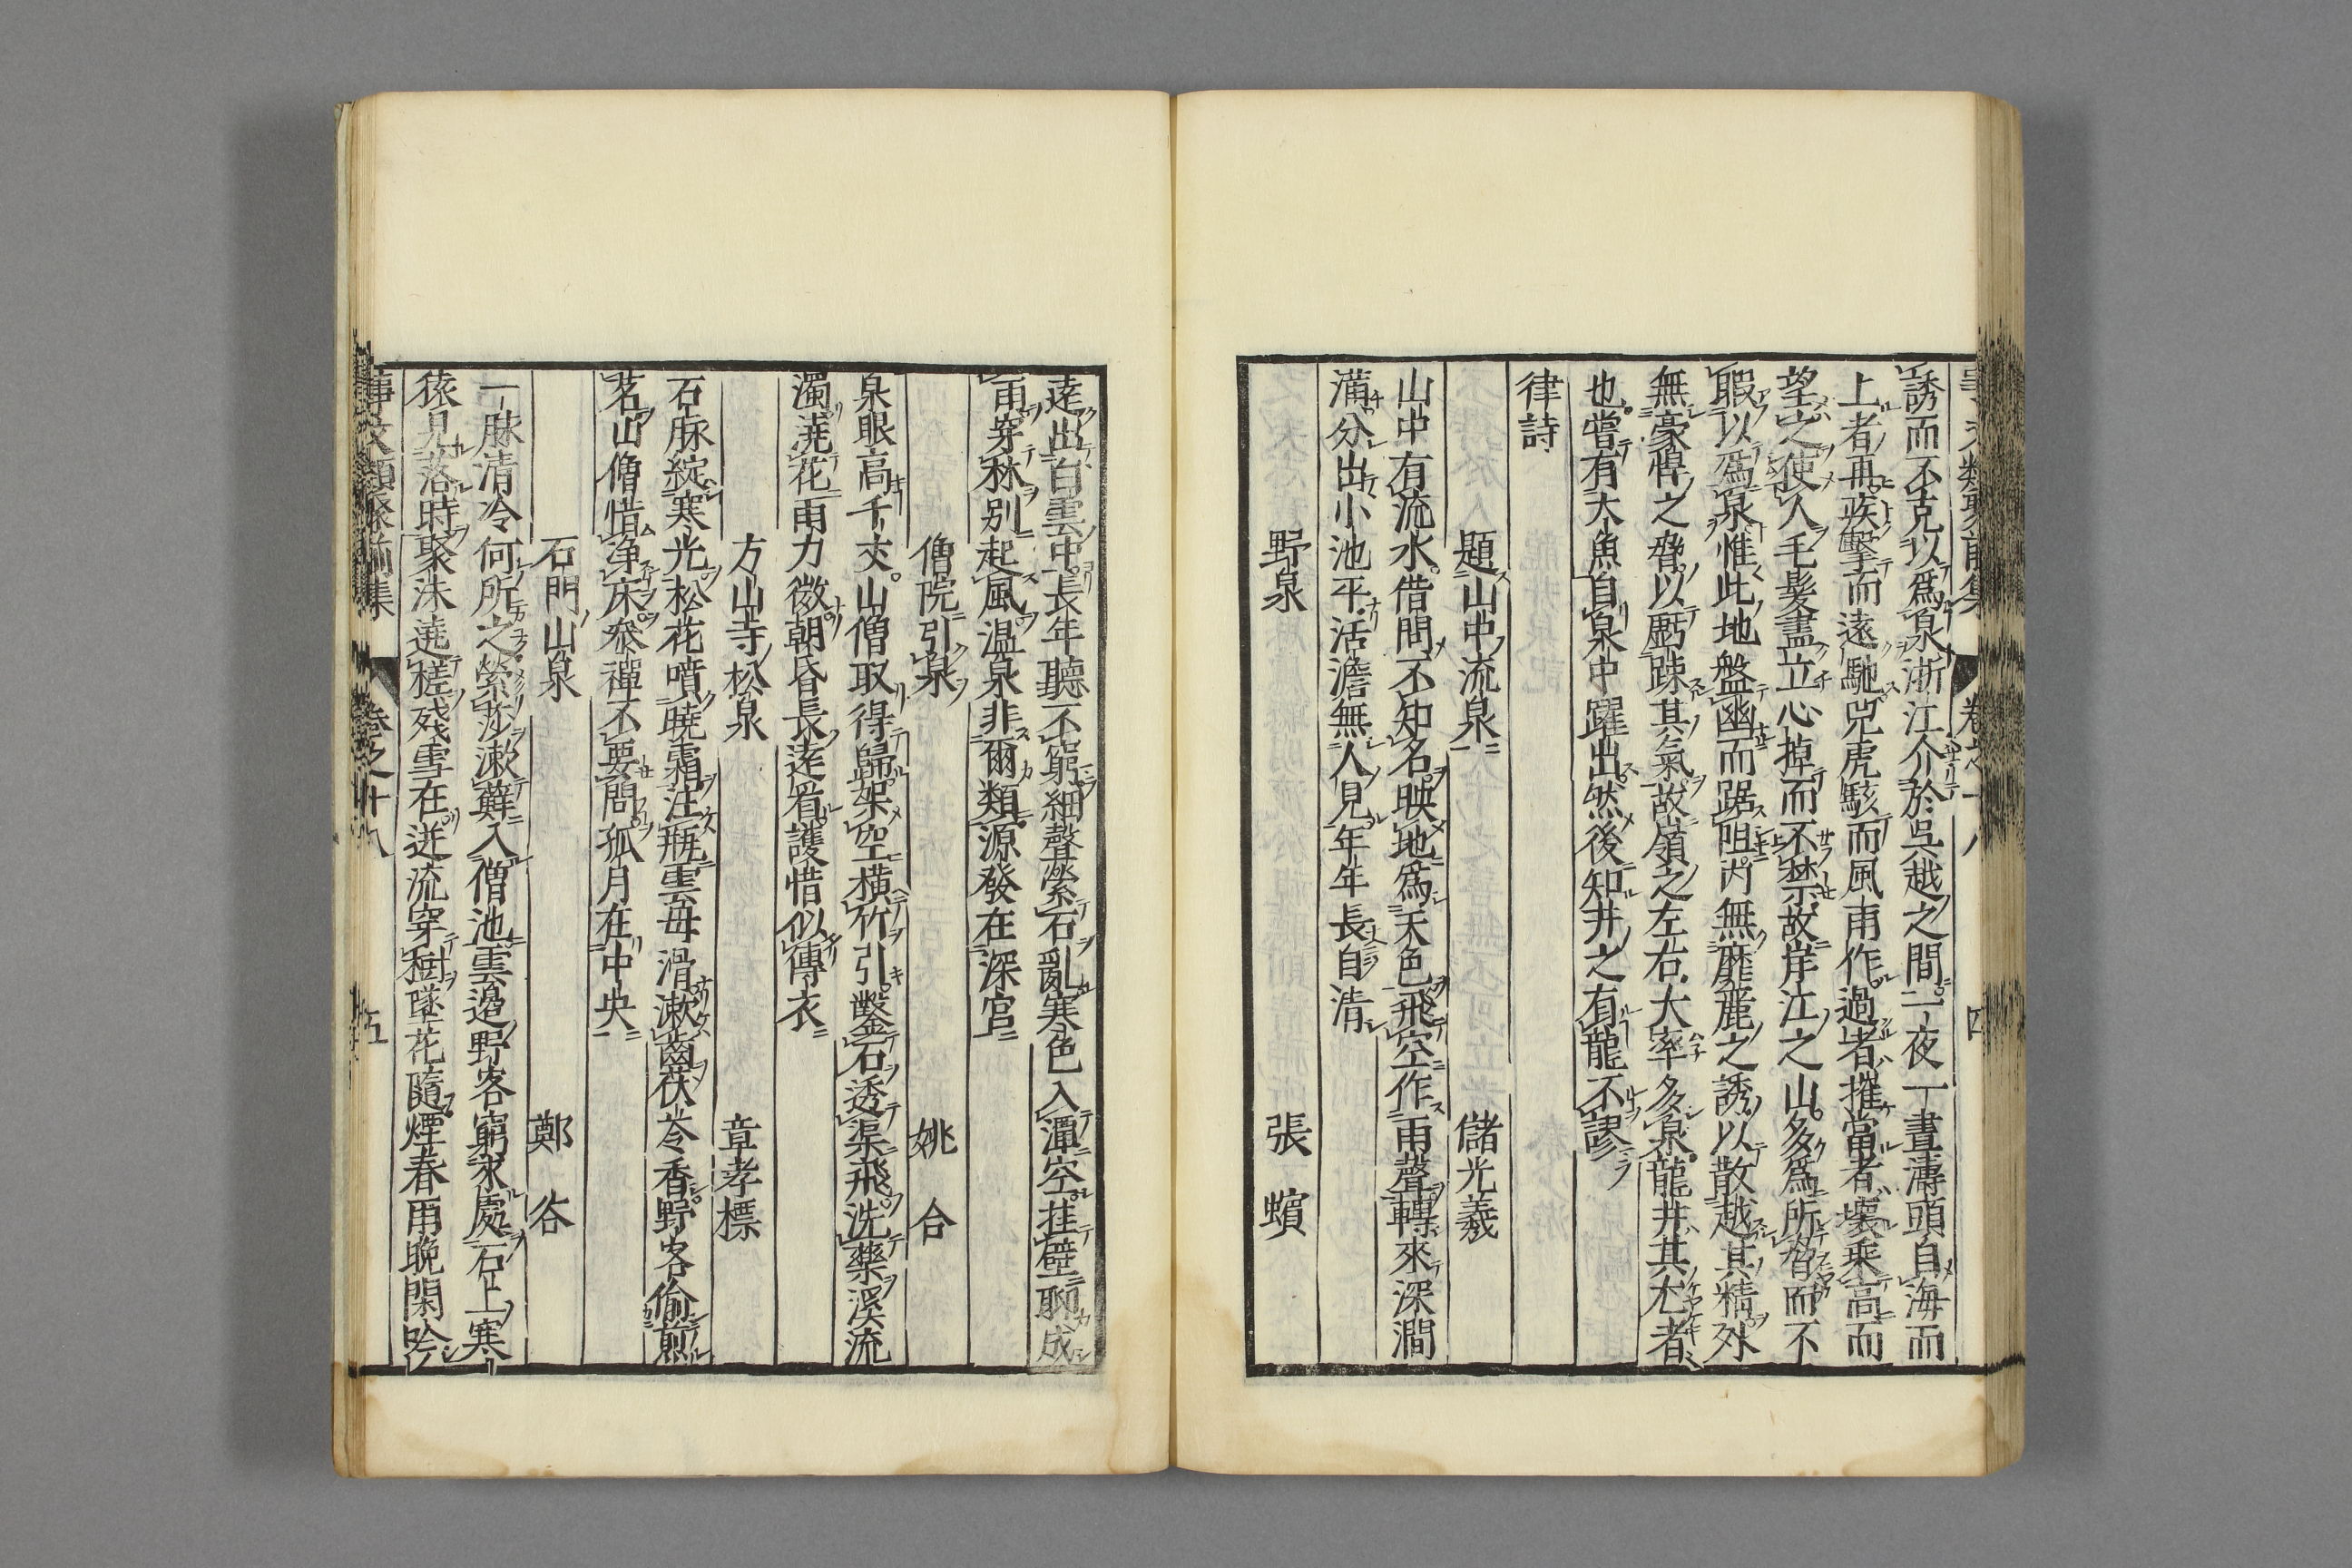 事文類聚前集 卷之十八 四
誘而不克以爲泉浙江介於吳越之間一夜一晝濤頭自海而
上者再疾擊而遠馳兕虎駭而風雨作過者摧當者壞乘高而
望之使人毛髮盡立心掉而不禁故岸江之山多爲所脅而不
暇以爲泉惟此地盤幽而踞阻內無靡麗之誘以散越其精外
無豪悍之脅以虧踈其氣故嶺之左右大率多泉龍井其尤者
也嘗有大魚自泉中躍出然後知井之有龍不謬
律詩
題山中流泉 儲光羲
山中有流水借問不知名映地爲天色飛空作雨聲轉來深澗
滿分出小池平活澹無人見年年長自清
野泉 張蠙
遠出白雲中長年聽不窮細聲縈石亂寒色入潭空挂壁聊成
雨穿林別起風溫泉非爾類源發在深宮
僧院引泉 姚合
泉眼高千丈山僧取得歸架空橫竹引鑿石透渠飛洗藥溪流
濁澆花雨力微朝昏長遶看護惜似傳衣
方山寺松泉 章孝標
石脉綻寒光松花噴曉霜注瓶雲母滑漱齒茯苓香野客偷煎
茗山僧惜净床參禪不要問孤月在中央
石門山泉 鄭谷
一脉清冷何所之縈莎漱蘚入僧池雲邊野客窮來處石上寒
猿見落時聚沫遶槎殘雪在迸流穿樹墜花隨煙春雨晚閑吟
事文類聚前集 卷之十八 五